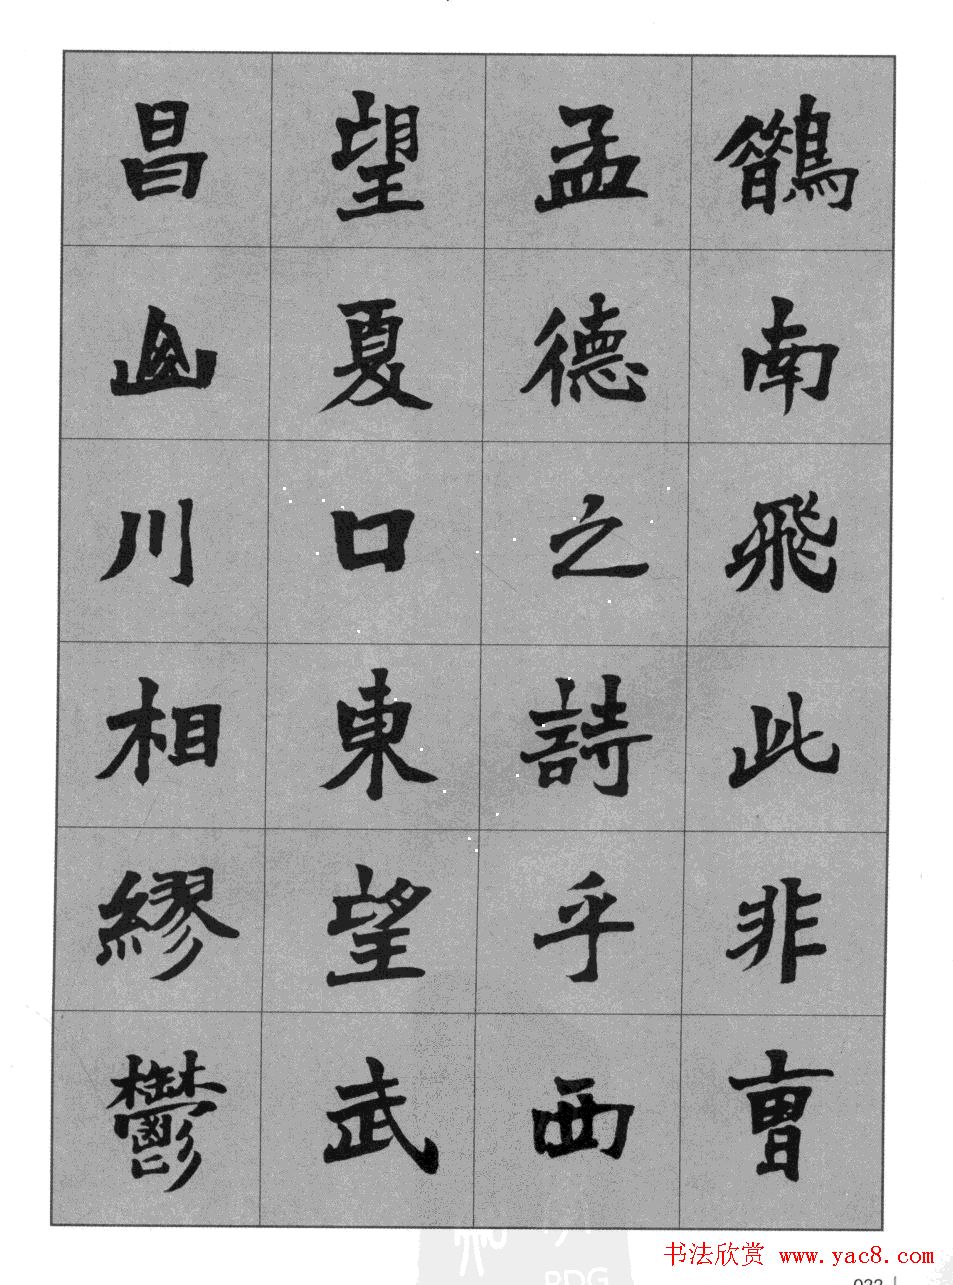 鵲南飛此非曹
孟德之詩乎西
望夏口東望武
昌山川相繆鬱
书法欣赏 www.yac8.com
022